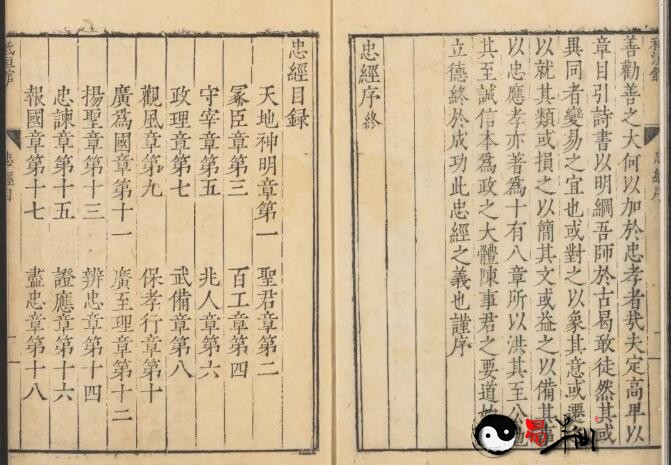 善勸善之大何以加於忠孝者哉夫定高卑以
章目引詩書以明綱吾師於古曷敢徒然其或
異同者變易之宜也或對之以象其意或遷
以就其類或損之以簡其文或益之以備其事
以忠應孝亦著爲十有八章所以洪其至公
其至誠信本爲政之大體陳事君之要道始
立德終於成功此忠經之義也謹序
忠經序終
忠經目錄
天地神明章第一 聖君章第二
冡臣章第三 百工章第四
守宰章第五 兆人章第六
政理章第七 武備章第八
觀風章第九 保孝行章第十
廣爲國章第十一 廣至理章第十二
揚聖章第十三 辨忠章第十四
忠諫章第十五 證應章第十六
報國章第十七 盡忠章第十八
易